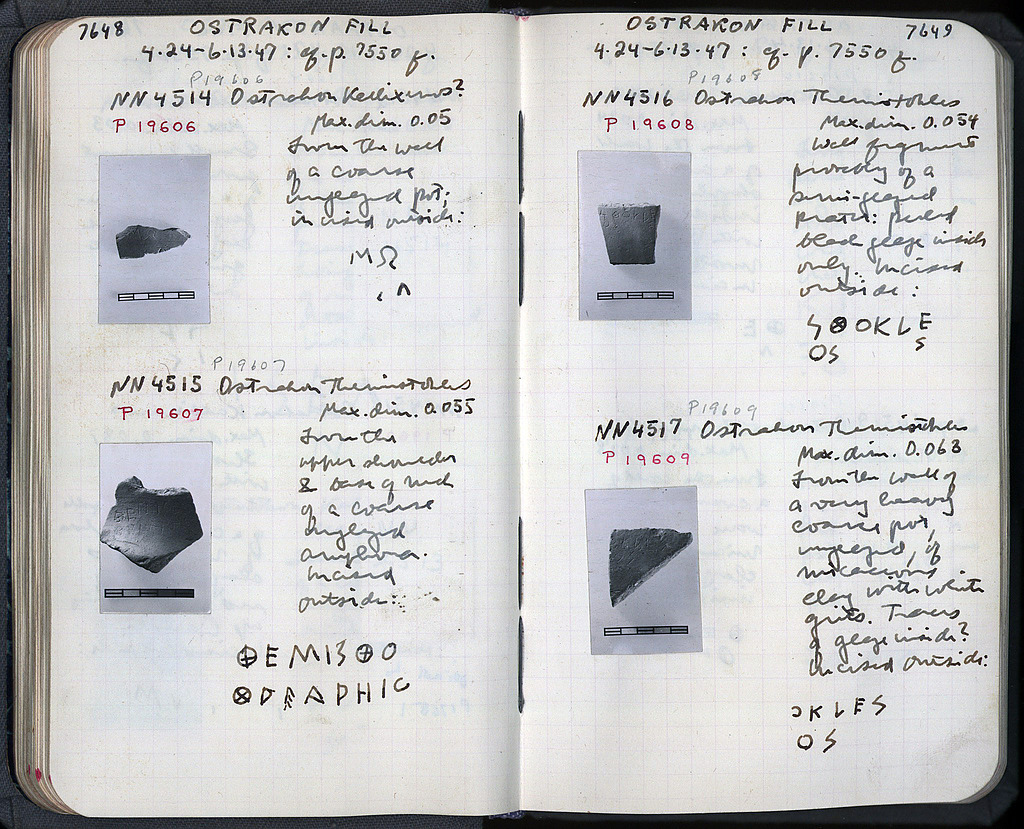 7648 OSTRAKON FILL
4.24-6.13.47: q.p. 7550 f.
P19606
NN4514 Ostrakon Kallixenos?
P 19606
Max.dim. 0.05
From the wall
of a coarse
unglazed pot;
incised outside:
ΜΩ
Λ
P19607
NN4515 Ostrakon Themistokles
P 19607
Max.dim. 0.055
From the
upper shoulder
& base of neck
of a coarse
unglazed
amphora.
Incised
outside:
⊕EMIS⊕O
⊗ΡΑΡΗΙC
OSTRAKON FILL 7649
4.24-6.13.47: q.p. 7550 f.
P19608
NN4516 Ostrakon Themistokles
P 19608
Max.dim. 0.054
Wall fragment
probably of a
semi-glazed
krater: peeled
black glaze inside
only. Incised
outside:
S⊗OKLE
OS S
P19609
NN4517 Ostrakon Themistokles
P 19609
Max.dim. 0.068
From the wall of
a very heavy
coarse pot,
unglazed, of
micaceous
clay with white
grits. Traces
of glaze inside?
Incised outside:
OKLES
OS